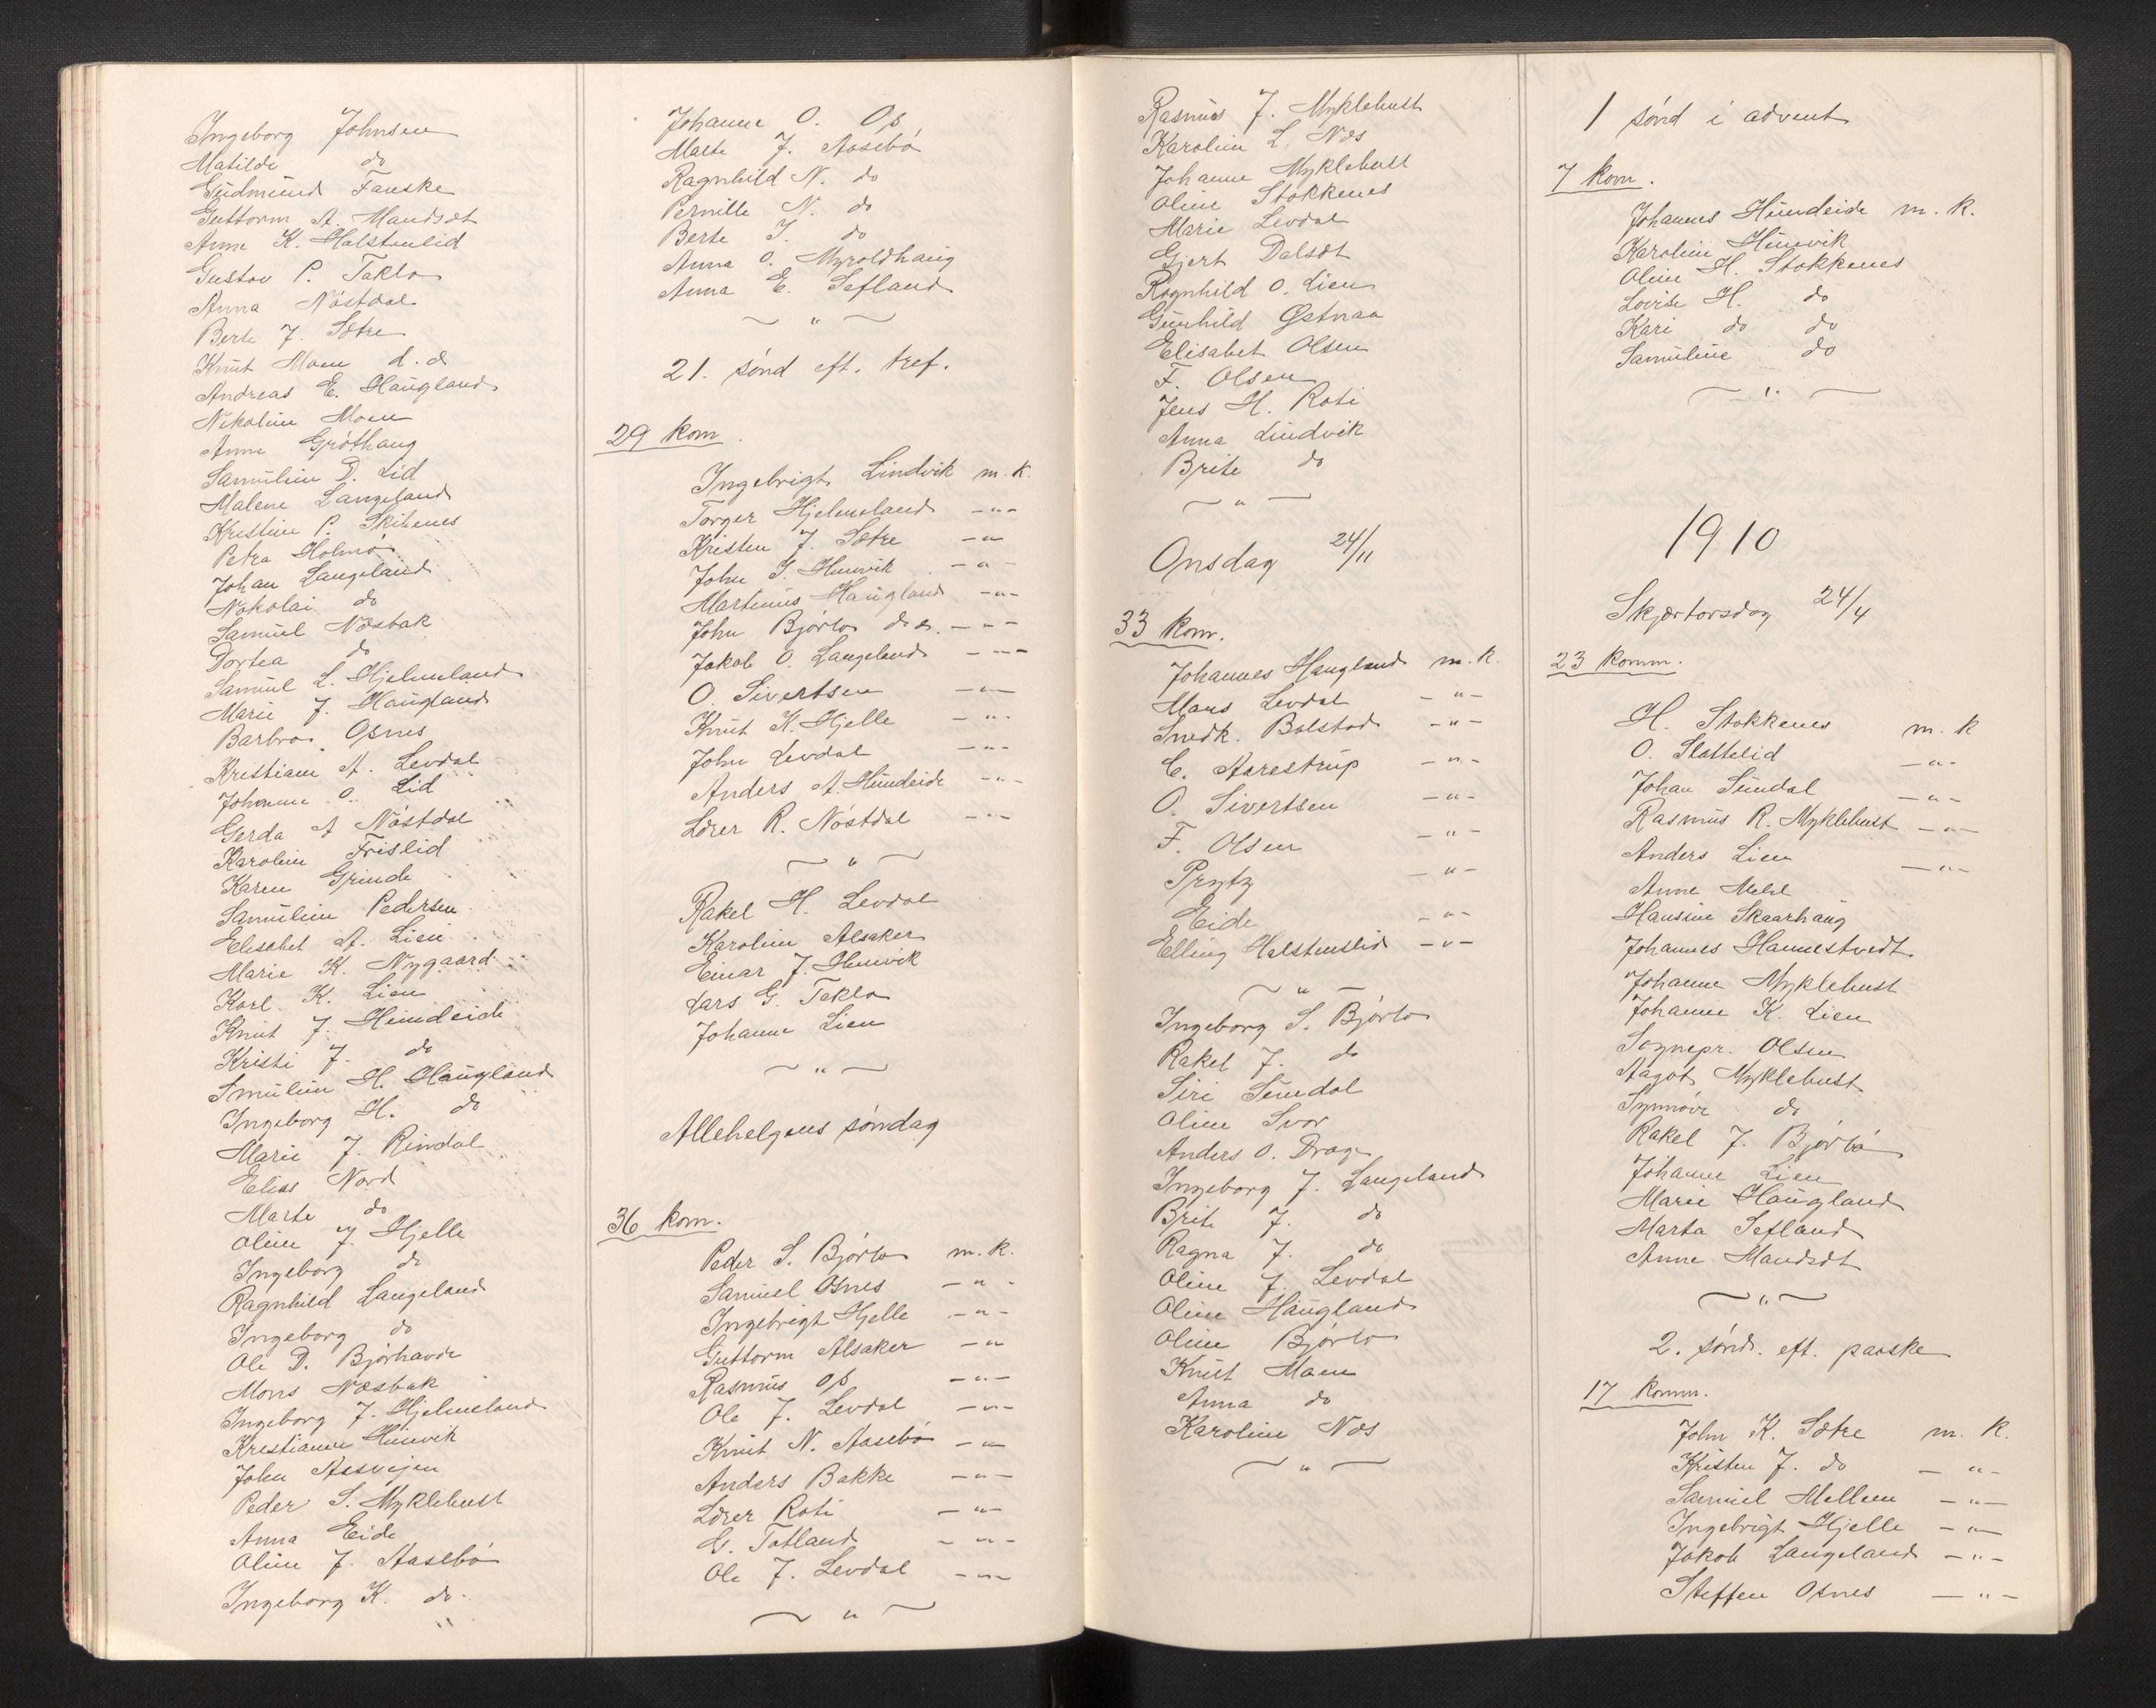 Ingeborg Johnsen
Matilde do
Gudmund Fanske
Guttorm A. Mandsdt
Anne K. Halstenlid
Gustav P. Taklo
Anna Nöstdal
Berte J. Sætre
Knut Moen d.æ
Andreas E. Haugland
Nikoline Moen
Anne Gröthaug
Samuline D. Lid
Malene Langeland
Kristine P. Skibenes
Petra Holmö
Johan Langeland
Nokolai do
Samuel Næsbak
Dortea do
Samuel L. Hjelmeland
Marie J. Haugland
Barbro Osnes
Kristiane A. Levdal
Johanne O. Lid
Gerda A Nöstdal
Karoline Frislid
Karen Grinde
Samuline Pedersen
Elisabet A. Lien
Marie K. Nygaard
Karl K. Lien
Knut J. Hundeide
Kristi J. do
Smuline H. Haugland
Ingeborg H. do
Marie J. Rindal
Elias Nord
Marte do
Oline J. Hjelle
Ingeborg do
Ragnhild Langeland
Ingeborg do
Ole D. Björhavde
Mons Næsbak
Ingeborg J. Hjelmeland
Kristianne Hunvik
John Aasvejen
Peder S. Myklebust
Anna Eide
Oline J. Aasebö
Ingeborg K. do
Johanne O. Os
Malte J. Aasebö
Ragnhild N. do
Pernille N. do
Berte J. do
Anna O. Myroldhaug
Anna E. Sefland
— " —
21. sönd eft. tref.
29 kom
Ingebrigt Lindvik m. k.
Torger Hjelmeland - " -
Kristen J. Sætre - "
John J. Hunvik - " -
Martinus Haugland - " -
John Björlo d.æ. - " -
Jakob O. Langeland - " -
O. Sivertsen - " -
Knut K. Hjelle - " -
John Levdal - " -
Anders A. Hundeide - " -
Lærer R. Nöstdal - " -
— " —
Rakel H. Levdal
Karoline Alsaker
Einar J. Hunvik
Lars G. Taklo
Johanne Lien
— " —
Allehelgens söndag
36 kom.
Peder S. Björlo m. k.
Samuel Osnes - " -
Ingebrigt Hjelle - " -
Guttorm Alsaker - "
Rasmus Os - " -
Ole J. Levdal - " -
Knut N. Aasebö - "
Anders Bakke - " -
Lærer Roti - " -
G. Totland - " -
Ole J. Levdal - " -
— " —
Rasmus J. Myklebust
Karoline L. Næs
Johanne Myklebust
Oline Stokkenes
Marie Levdal
Gjert Dalsdt
Ragnhild O. Lien
Gunhild Østnaa
Elisabet Olsen
F. Olsen
Jens H. Roti
Anna Lindvik
Brite do
— " —
Onsdag 24/11
33 kom.
Johannes Haugland m. k.
Mons Levdal - " -
Snedk. Bolstad - " -
C. Aarestrup - " -
O. Sivertsen - " -
F. Olsen - " -
Prytz - " -
Eide - " -
Elling Halstenslid - " -
— " —
Ingeborg S. Björlo
Rakel J. do
Siri Sundal
Oline Svor
Anders O. Drage
Ingeborg J. Langeland
Brite J. do
Ragna J. do
Oline J. Levdal
Oline Haugland
Oline Björlo
Knut Moen
Anna do
Karoline Næs
— " —
1 sönd i advent
7 kom.
Johannes Hundeide m. k.
Karoline Hunvik
Oline H. Stokkenes
Lovise H. do
Kari do do
Samuline do
— " —
1910
Skjærtorsdag 24/4
23 komm.
H. Stokkenes m. k
O. Slottelid - " -
Johan Sundal - " -
Rasmus R. Myklebust - " -
Anders Lien - " -
Anne Mehl
Hansine Skaarhaug
Johannes Hannestvedt
Johanne Myklebust
Johanne K. Lien
Sognepr. Olsen
Aagot Myklebust
Synnöve do
Rakel J. Björlo
Johanne Lien
Marie Haugland
Marta Sefland
Anne Mandsdt
— " —
2. sönd. eft. paaske
17 komm.
John K. Sætre m. k.
Kristen J. do - " -
Samuel Mellem - " -
Ingebrigt Hjelle - " -
Jakob Langeland - " -
Steffen Osnes - " -